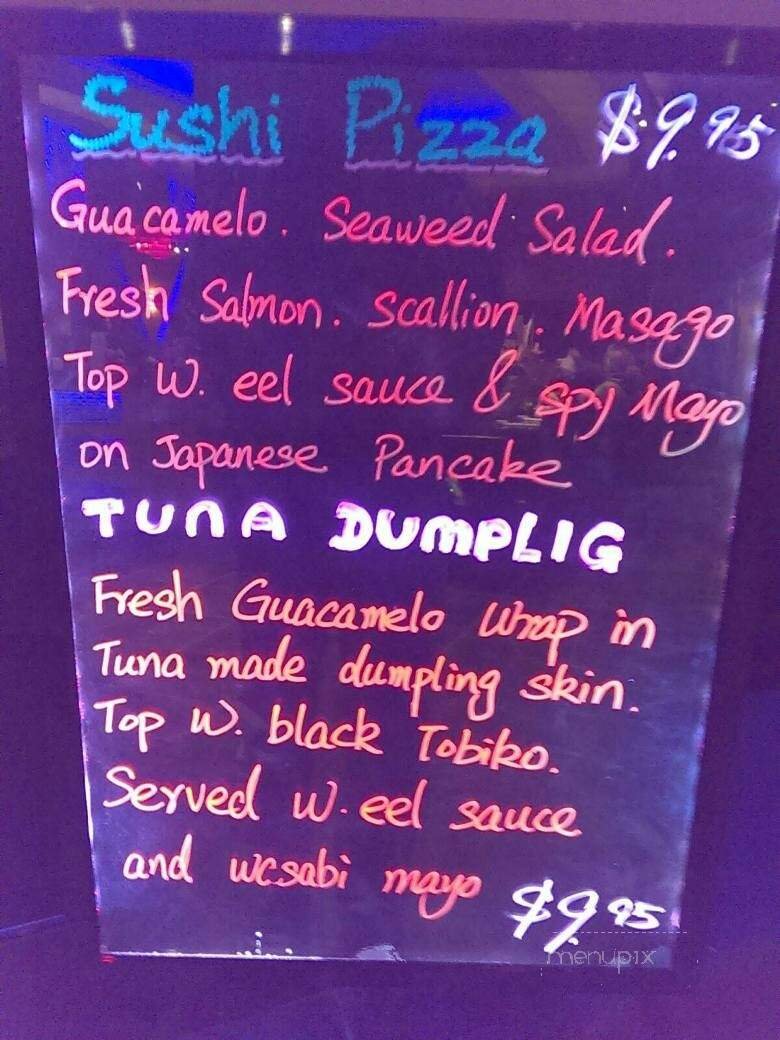 Sushi Pizza $9.95
Guacamelo. Seaweed Salad.
Fresh Salmon. Scallion. Masago
Top W. eel sauce & spy Mayo
on Japanese Pancake
TUNA DUMPLIG
Fresh Guacamelo Wrap in
Tuna made dumpling skin.
Top W. black Tobiko.
Served W. eel sauce
and wasabi mayo $9.95
menupix